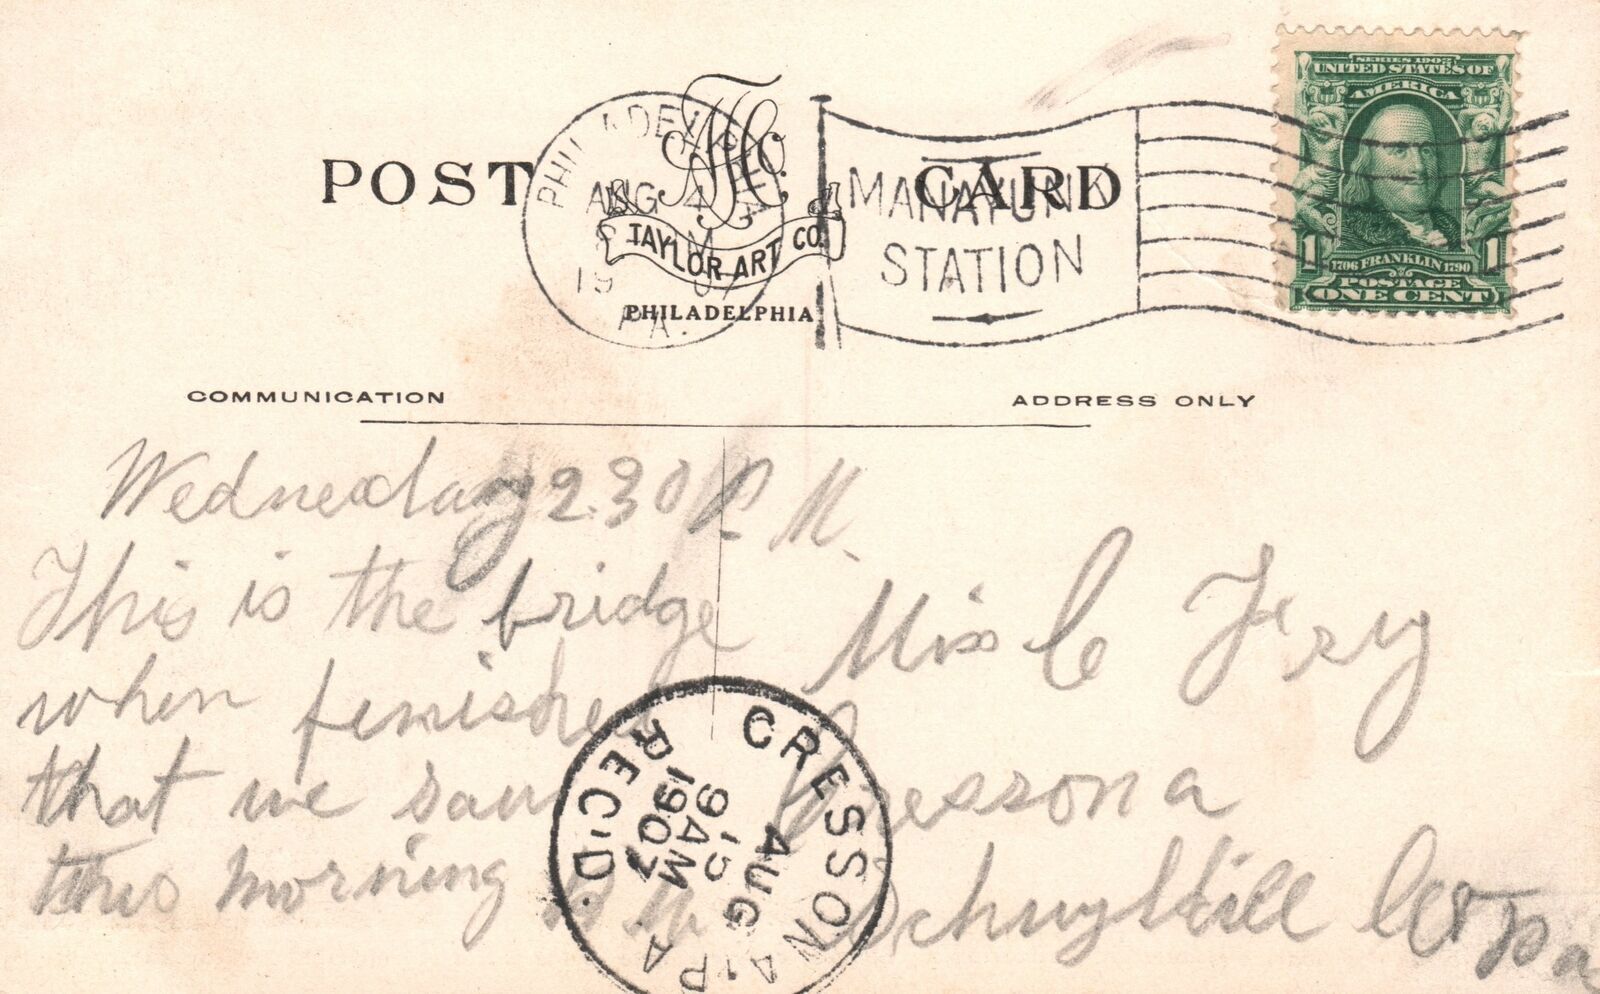 POST CARD
TAYLOR ART CO.
PHILADELPHIA
PHILADELPHIA
AUG 14
M
1907
PA.
MANAYUNK
STATION
SERIES 1902
UNITED STATES OF
AMERICA
1 1
1706 FRANKLIN 1790
POSTAGE
ONE CENT
COMMUNICATION
ADDRESS ONLY
Wednesday 2.30 P. M.
This is the bridge
when fenished
that we saw
this morning
Miss C Frey
Cressona
Schuylkill Co Pa
CRESSONA, PA.
AUG
15
9 AM
1907
REC'D.